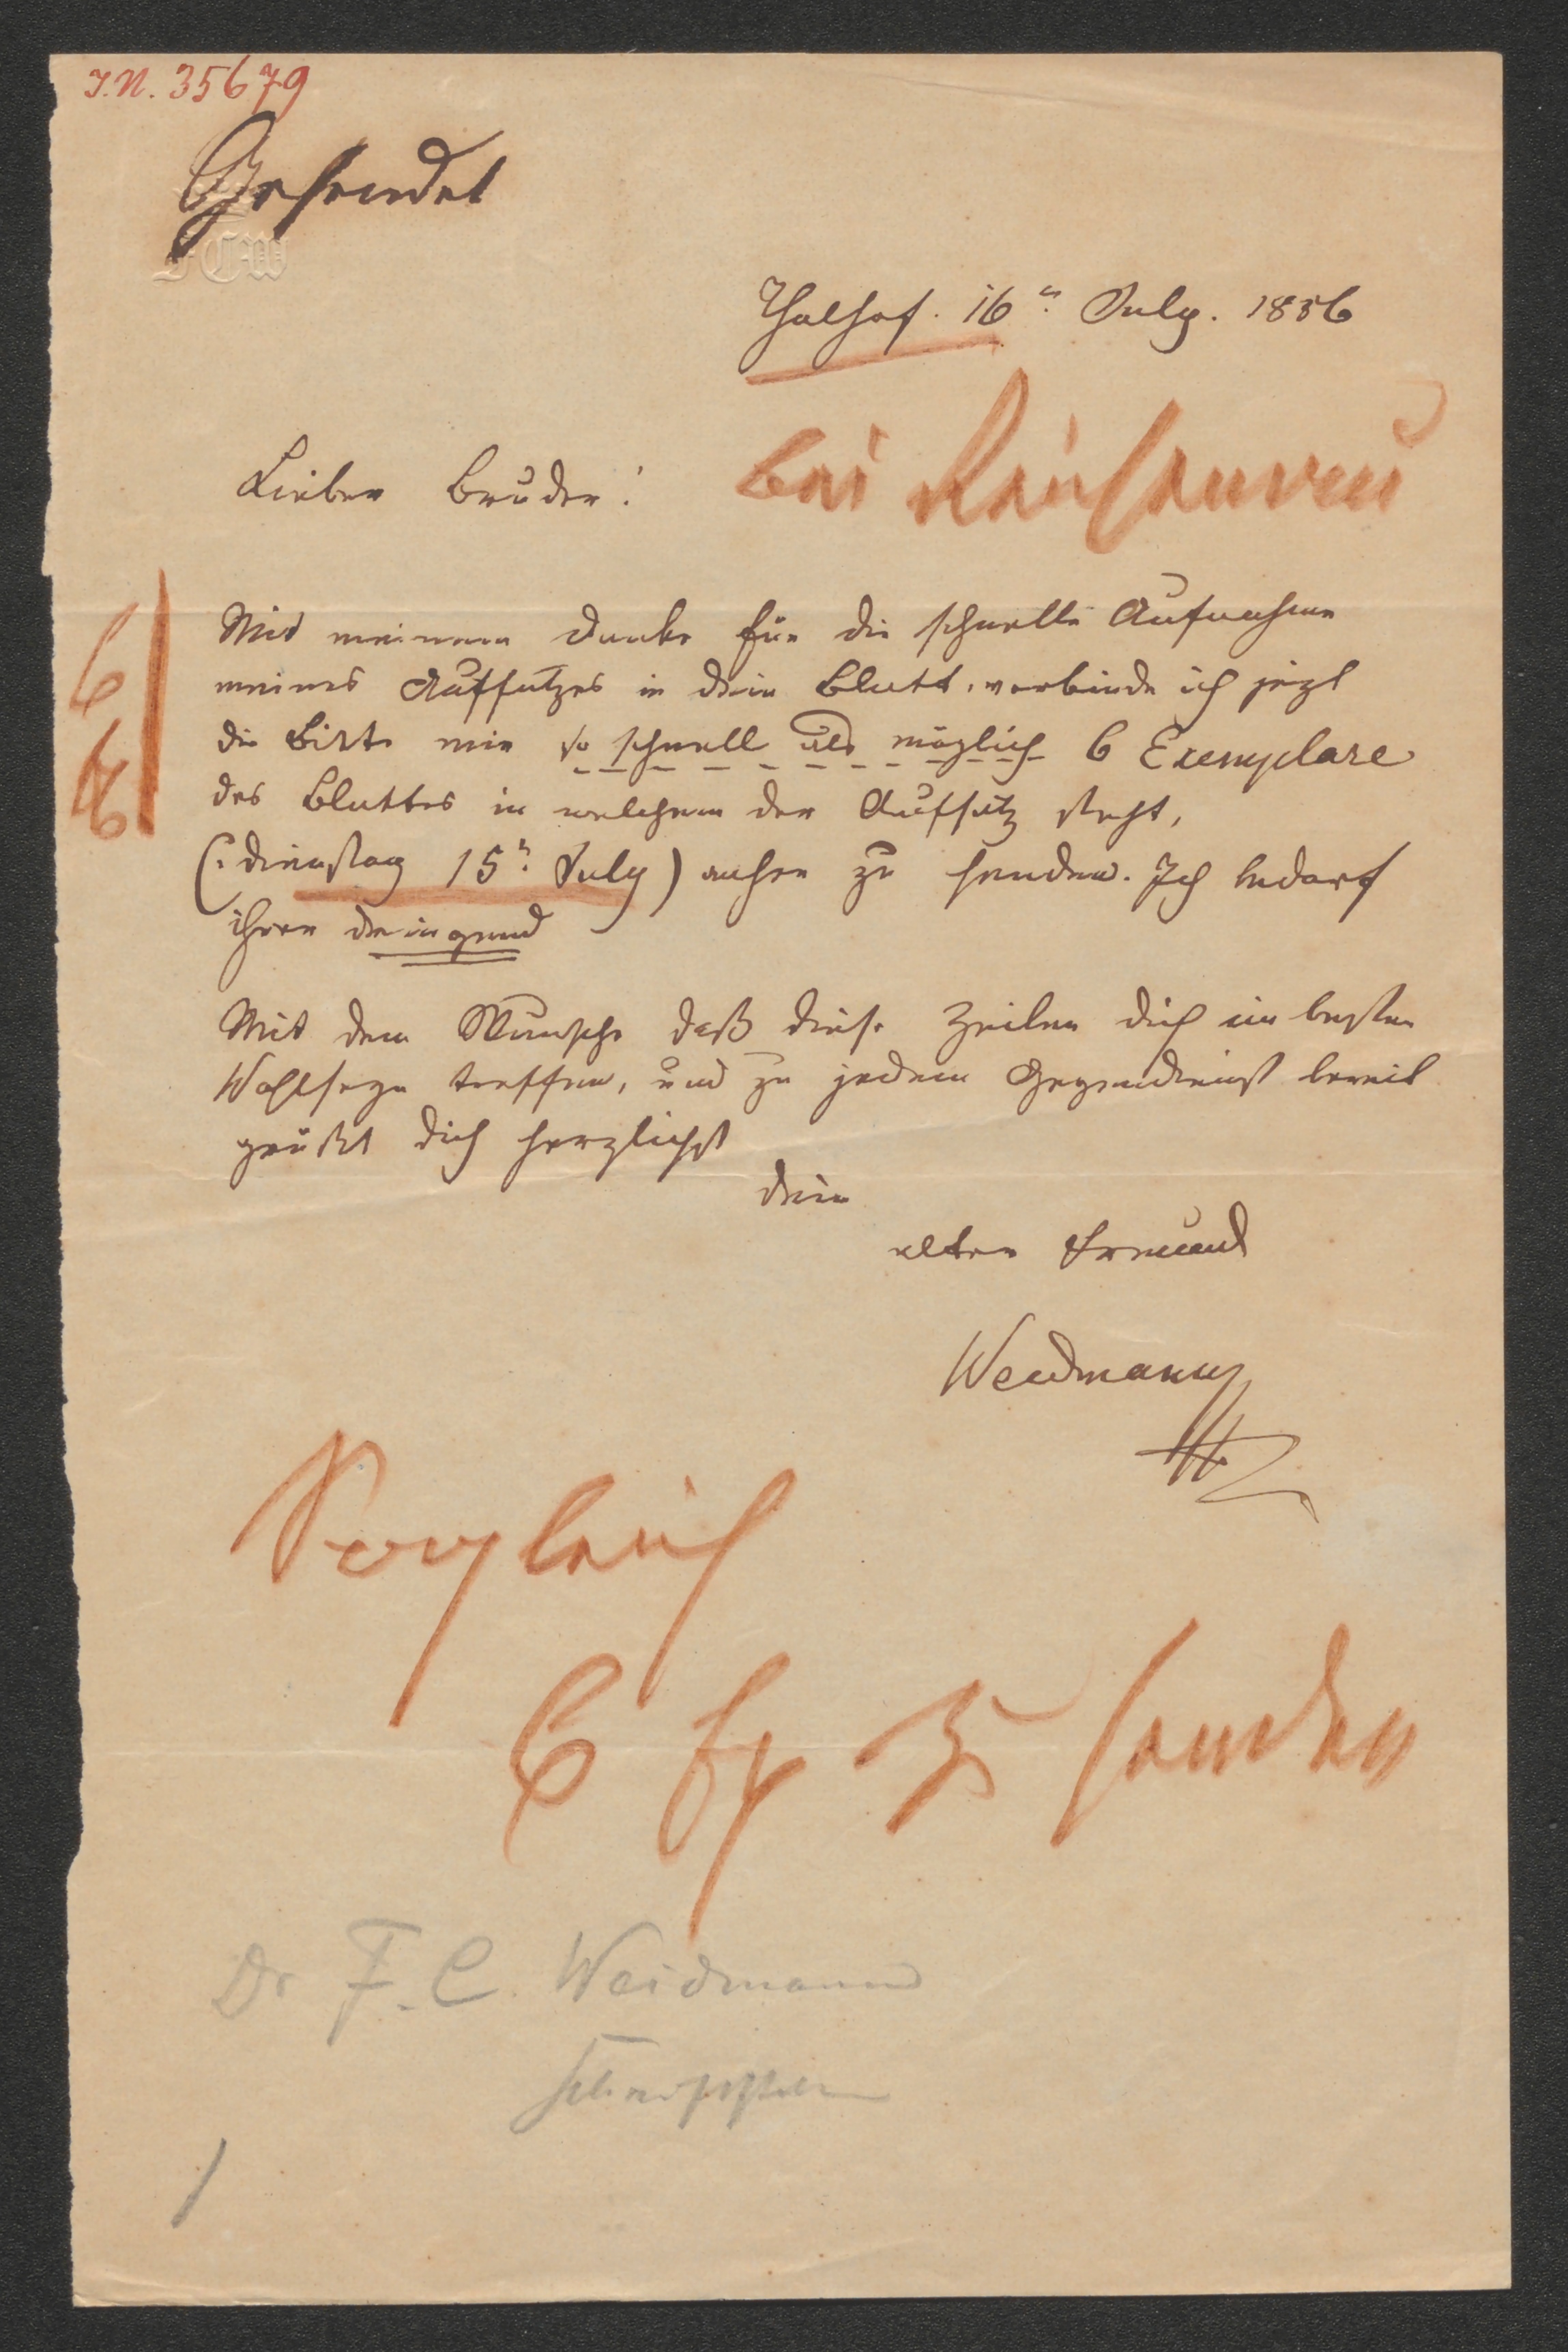 I.N. 35679
Gesendet
FCW
Thalhof. 16n. July. 1856
bei Reichenau
Lieber Bruder!
Mit meinem Danke für die schnelle Aufnahme
meines Aufsatzes in dein Blatt, verbinde ich jezt
6
die Bitte mir so schnell als möglich 6 Exemplare
des Blattes in welchem der Aufsatz steht,
(: Dienstag 15n. July) anher zu senden. Ich bedarf
ihrer dringend
Mit dem Wunsche daß diese Zeilen dich im besten
Wohlseyn treffen, und zu jedem Gegendienst bereit
grüßt dich herzlichst
dein
alter Freund
Weidmann
Sogleich
6 Ex zu senden
Dr F. C. Weidmann